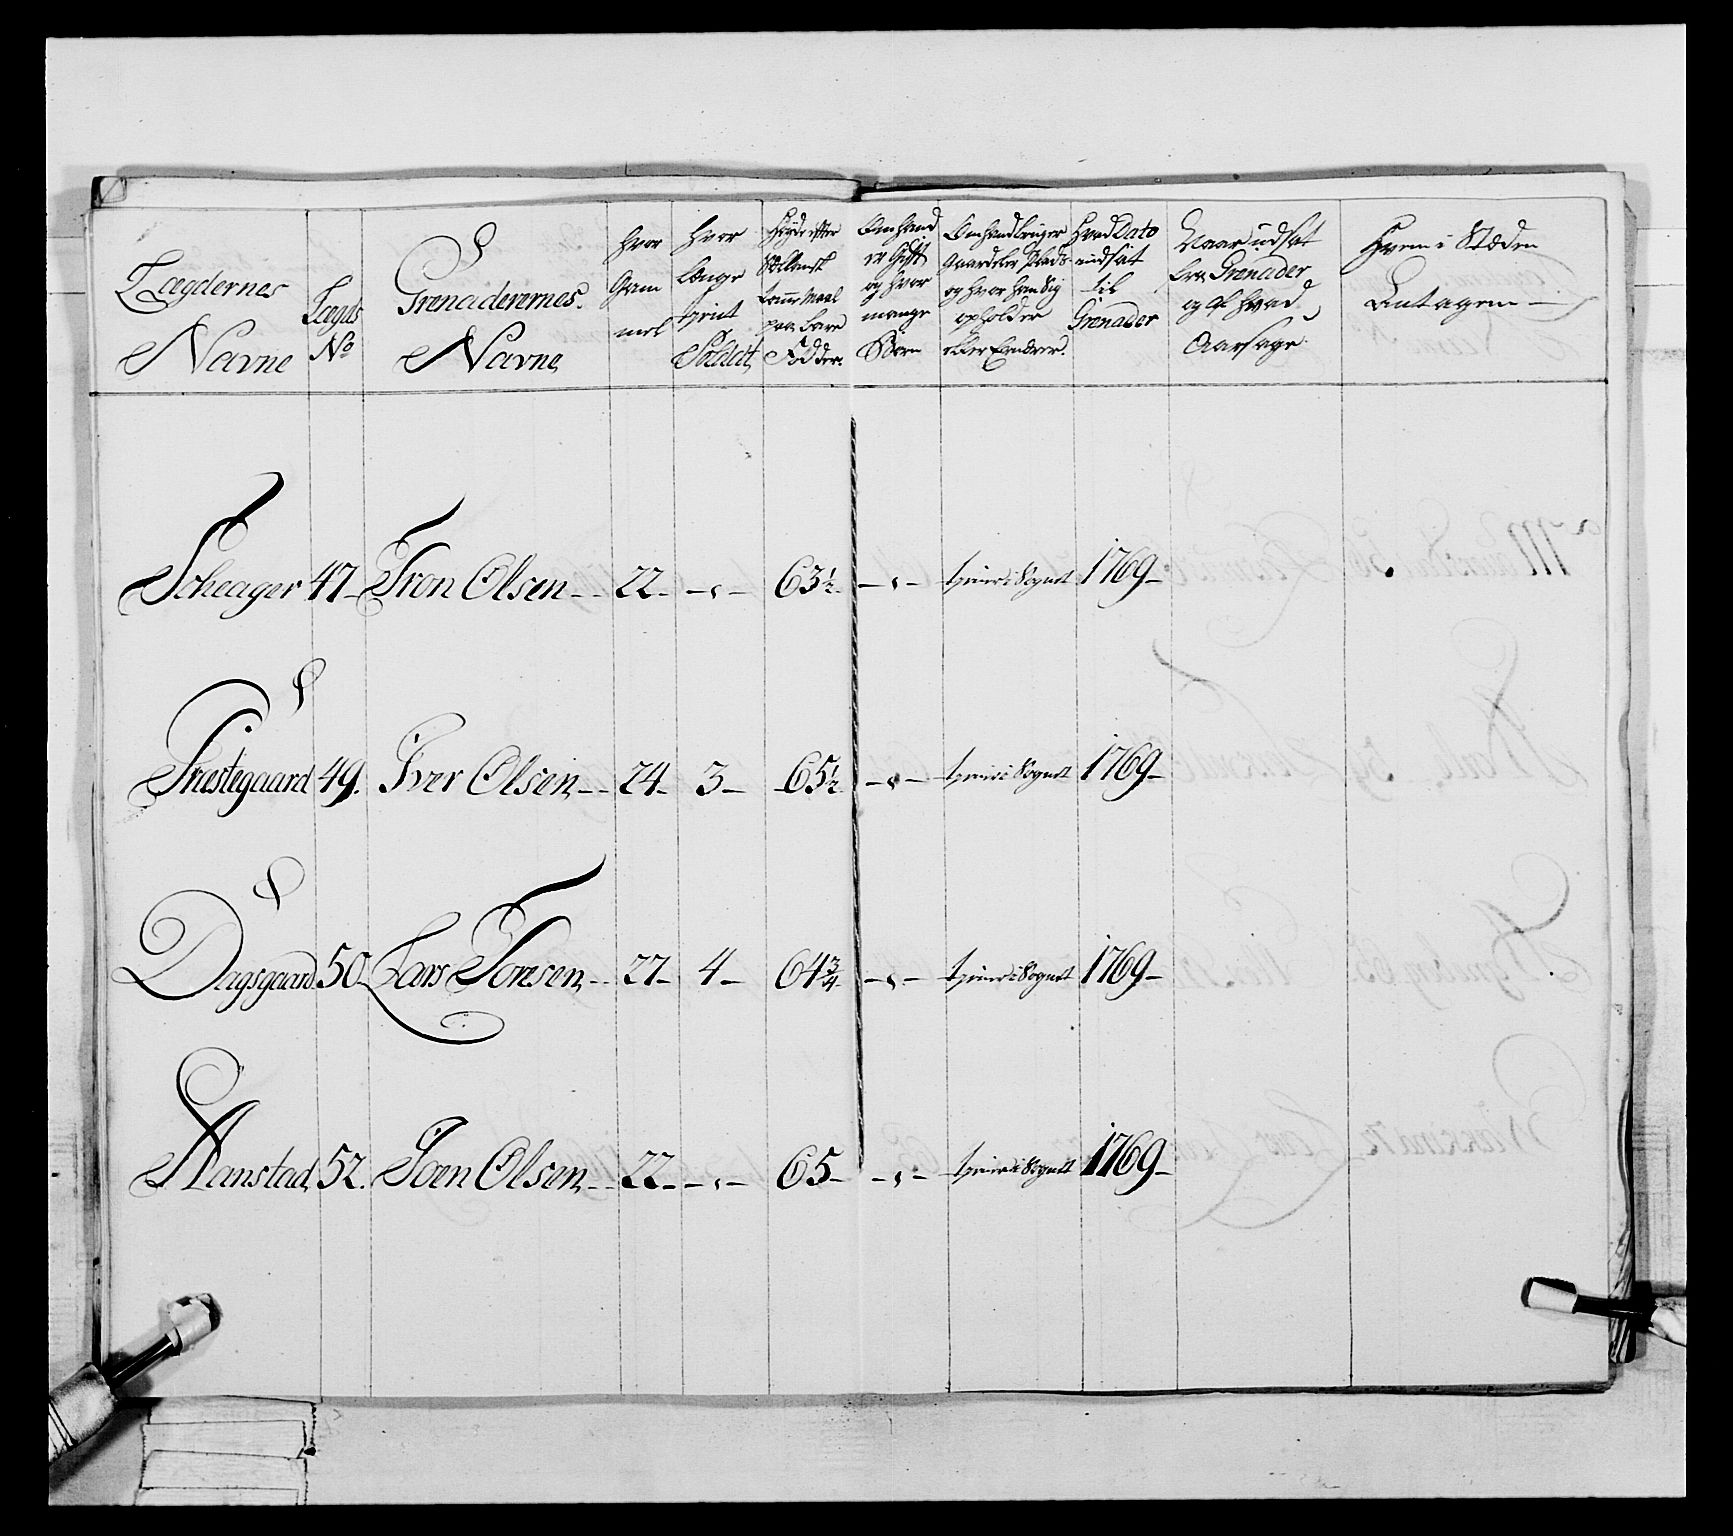 Lægdernes Navne
Lægds No
Grenaderernes Navne
Hvor Gam mel
Hvor Længe tient Soldat
Høyde efter Sællandsk Tomme Maal paa bare Fødder
Om hand er Gift og hvor mange Børn
Om hand bruger Gaard eller Plads og hvor han sig opholder
Hvad Dato indsat til Grenader
Naar udsat fra Grenader og af hvad Aarsage
Hvem i Stæden Antagen
Scheager 47 Tron Olsen 22 - „ - 63½ - „ - tiener i Sognet 1769
Præstegaard 49. Iver Olsen 24 3 65½ - „ - tiener i Sognet 1769
Dagsgaard 50 Lars Toresen 27 4 64¾ - „ - tiener i Sognet 1769
Aanstad 52. Joen Olsen 22 - „ - 65 - „ - tiener i Sognet 1769